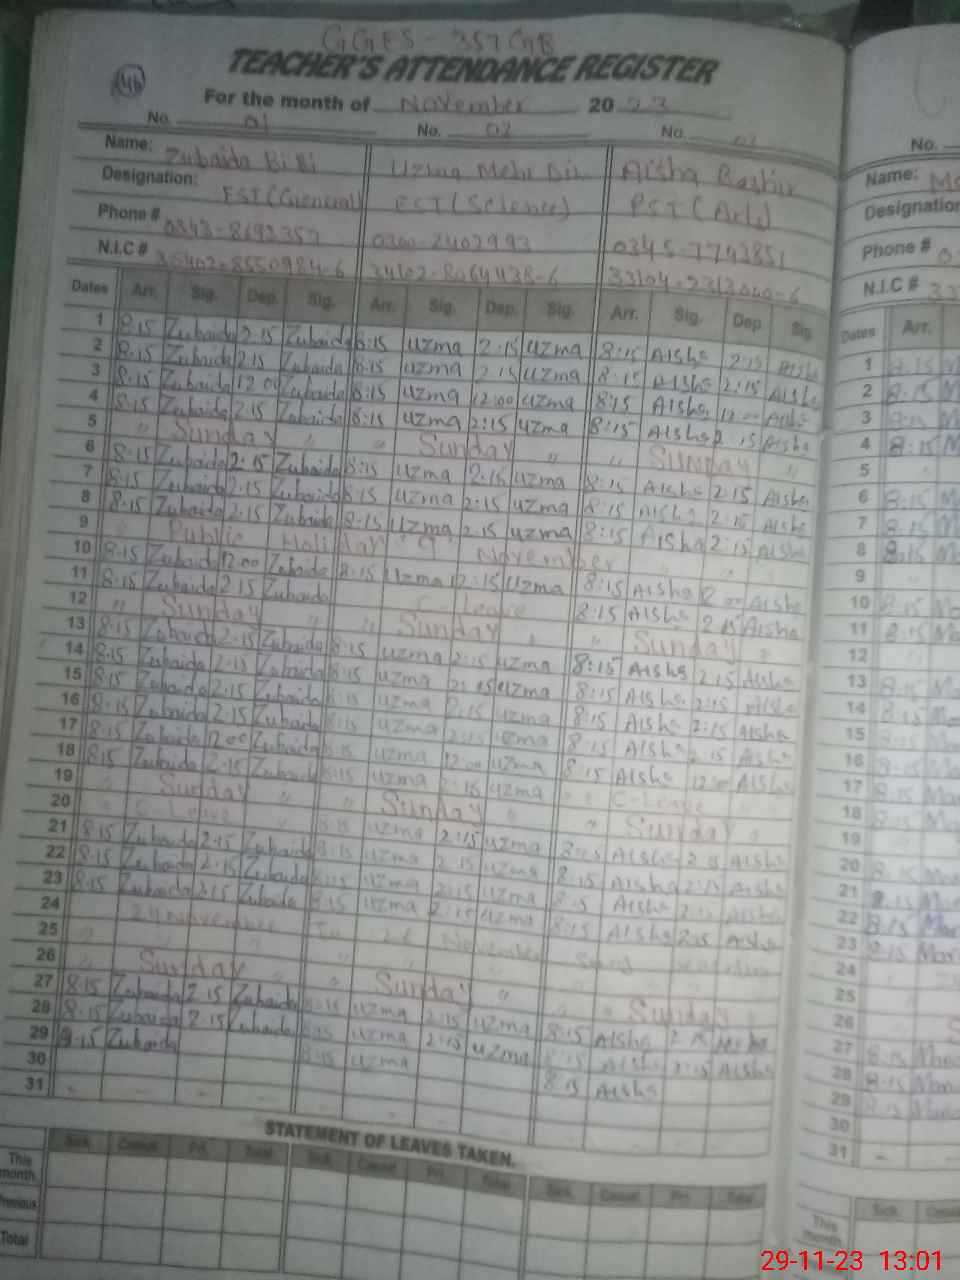 GGES - 357 GB
TEACHER'S ATTENDANCE REGISTER
46
For the month of November 20 23
No. 01 No. 02 No.
No.
Name: Zubaida BiBi Uzma Mehr Din Aisha Bashir
Name:
Designation: EST (General) EST (Science) PST (Arts)
Designation
Phone # 0343-8693357 0300-2402993 0345-7743851
Phone #
N.I.C # 34102-8064438-6
N.I.C # 33
Dates Arr. Sig. Dep. Sig. Arr. Sig. Dep. Sig. Arr. Sig. Dep. Sig
Dates Arr.
1 8.15 Zubaida 2.15 Zubaida 8:15 uzma 2:15 uzma 8:15 Aisha 2:15 Aisha
2 8.15 Zubaida 2.15 Zubaida 8:15 uzma 2.15 uzma 8:15 Aisha 2:15 Aisha
3 8.15 Zubaida 12.00 Zubaida 8:15 uzma 12:00 uzma 8:15 Aisha 12:00 Aisha
4 8.15 Zubaida 2.15 Zubaida 8:15 uzma 2:15 uzma 8:15 Aisha 2.15 Aisha
5 " Sunday " " Sunday " " Sunday "
6 8.15 Zubaida 2:15 Zubaida 8:15 uzma 2:15 uzma 8:15 Aisha 2:15 Aisha
7 8.15 Zubaida 2.15 Zubaida 8:15 uzma 2:15 uzma 8:15 Aisha 2:15 Aisha
8 8.15 Zubaida 2.15 Zubaida 8:15 uzma 2:15 uzma 8:15 Aisha 2:15 Aisha
9 Public Holiday 9 November
10 8.15 Zubaida 12.00 Zubaida 8:15 uzma 12:15 uzma 8:15 Aisha 12:00 Aisha
11 8.15 Zubaida 2.15 Zubaida C-Leave 8:15 Aisha 2:15 Aisha
12 " Sunday " " Sunday " " Sunday "
13 8.15 Zubaida 2.15 Zubaida 8:15 uzma 2:15 uzma 8:15 Aisha 2.15 Aisha
14 8.15 Zubaida 2.15 Zubaida 8:15 uzma 2:15 uzma 8:15 Aisha 2:15 Aisha
15 8.15 Zubaida 2.15 Zubaida 8:15 uzma 2:15 uzma 8:15 Aisha 2:15 Aisha
16 8.15 Zubaida 2.15 Zubaida 8:15 uzma 2:15 uzma 8:15 Aisha 2:15 Aisha
17 8.15 Zubaida 12.00 Zubaida 8:15 uzma 12:00 uzma 8:15 Aisha 12:00 Aisha
18 8.15 Zubaida 2.15 Zubaida 8:15 uzma 2:15 uzma C-Leave
19 " Sunday " " Sunday " " Sunday "
20 C-Leave 8:15 uzma 2:15 uzma 8:15 Aisha 2:15 Aisha
21 8.15 Zubaida 2.15 Zubaida 8:15 uzma 2:15 uzma 8:15 Aisha 2:15 Aisha
22 8.15 Zubaida 2.15 Zubaida 8:15 uzma 2:15 uzma 8:15 Aisha 2:15 Aisha
23 8.15 Zubaida 2.15 Zubaida 8:15 uzma 2:15 uzma 8:15 Aisha 2:15 Aisha
24 24 November To November
25
26 " Sunday " " Sunday " " Sunday "
27 8.15 Zubaida 2.15 Zubaida 8:15 uzma 2:15 uzma 8:15 Aisha 2:15 Aisha
28 8.15 Zubaida 2.15 Zubaida 8:15 uzma 2:15 uzma 8:15 Aisha 2:15 Aisha
29 8.15 Zubaida 8:15 uzma 8:15 Aisha
30
31
STATEMENT OF LEAVES TAKEN.
Sick. Casual. Pri. Total Sick. Casual Pri. Total Sick. Casual. Pri. Total
This month.
Previous
Total
1 8.15
2 8.15
3
4 8:15
5
6 8.15
7 8.15
8 8.15
9
10 8.15
11 8.15
12
13 8.15
14 8.15
15 8.15
16 8.15
17 8.15
18 8.15
19
20 8.15
21 8.15
22 8.15
23 8.15
24
25
26
27 8.15
28 8.15
29
30
31
Sick.
This month
29-11-23 13:01